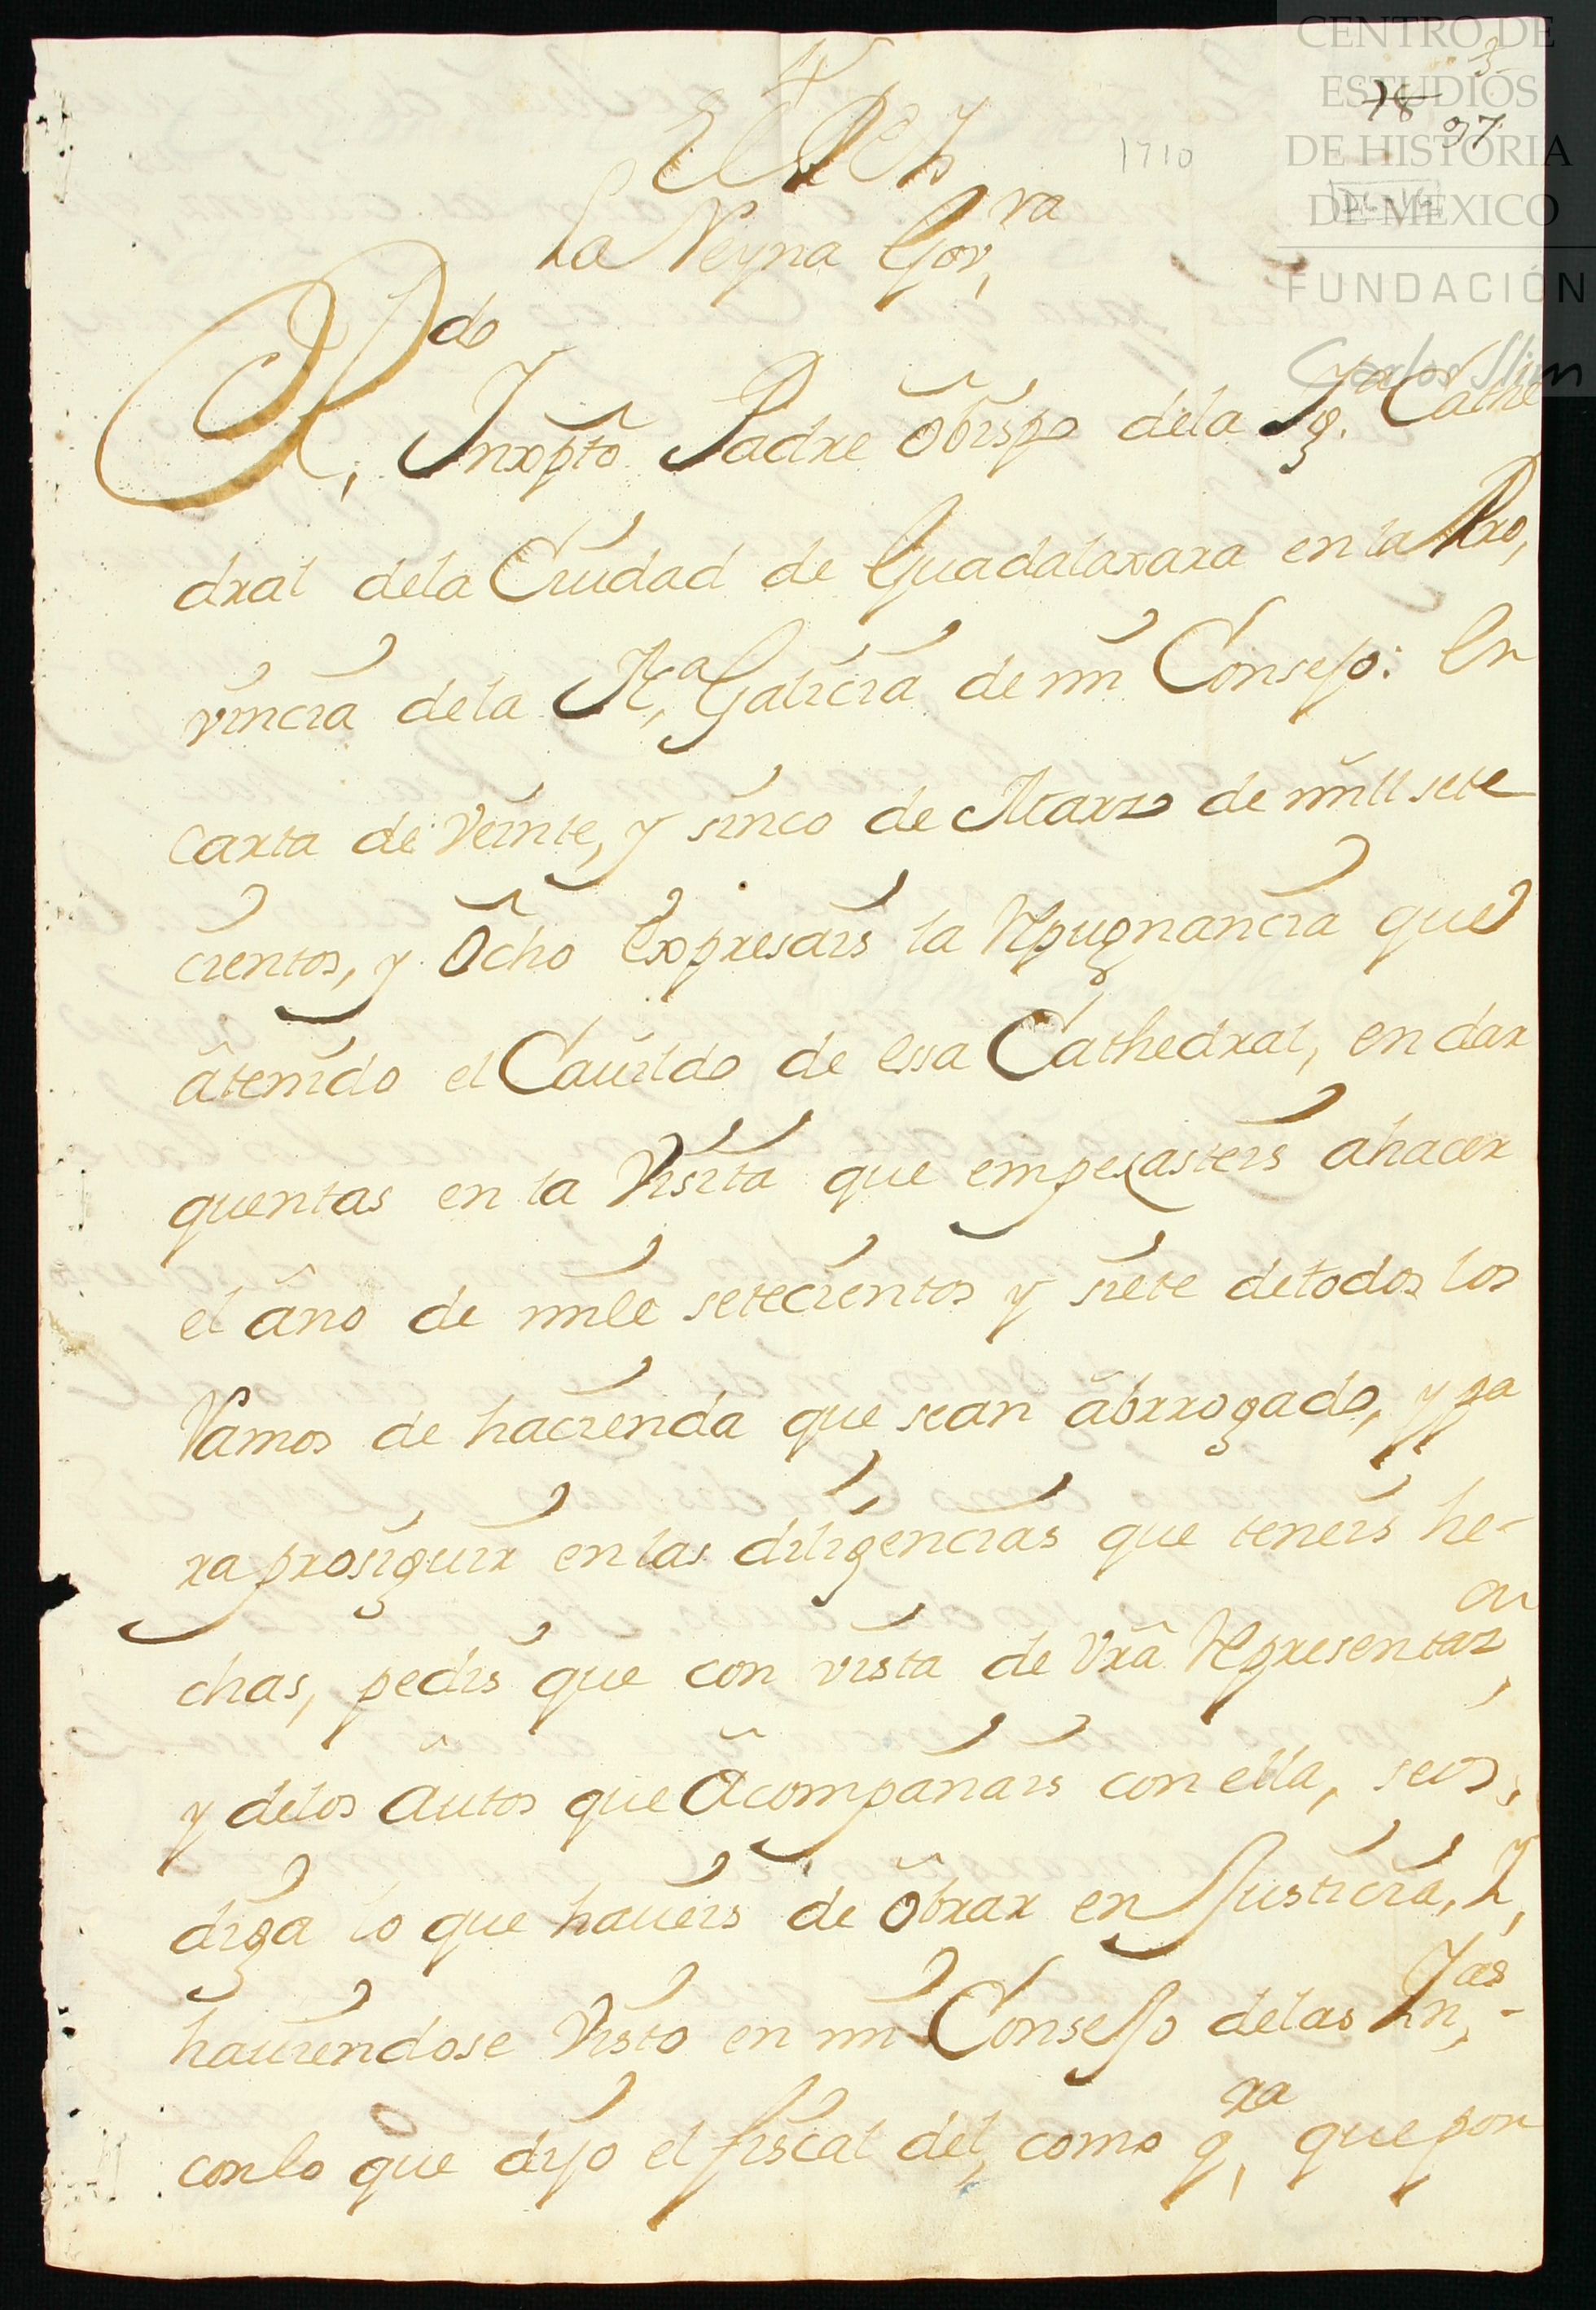 CENTRO DE
ESTUDIOS
DE HISTORIA
DE MEXICO
FUNDACIÓN
Carlos Slim
3
18
97
1710
El Rey
La Reyna Gov.ra
R.do Inxpto Padre obispo dela Yg.a Cathe
dral dela Ciudad de Guadalaxara en la Pro,
vincia dela N.a Galicia de mi Consejo: En
carta de Veinte, y sinco de Marzo de mill sete
cientos, y ocho Expresais la Repugnancia que
âtenido el Cauildo de essa Cathedral, en dar
quentas en la Visita que empezasteis a hacer
el año de mill setecientos y siete de todos los
Ramos de hacienda que sean âbrrogado, y pa
ra prosiguir en las diligencias que teneis he-
chas, pedis que con vista de Vrâ Representaz.on
y delos Autos que âcompañais con ella, seos,
diga lo que haueis de obrar en Justicia, Y,
hauiendose Visto en mi Consejo delas Yn,ias-
con lo que dijo el fiscal del, como q,ra que por